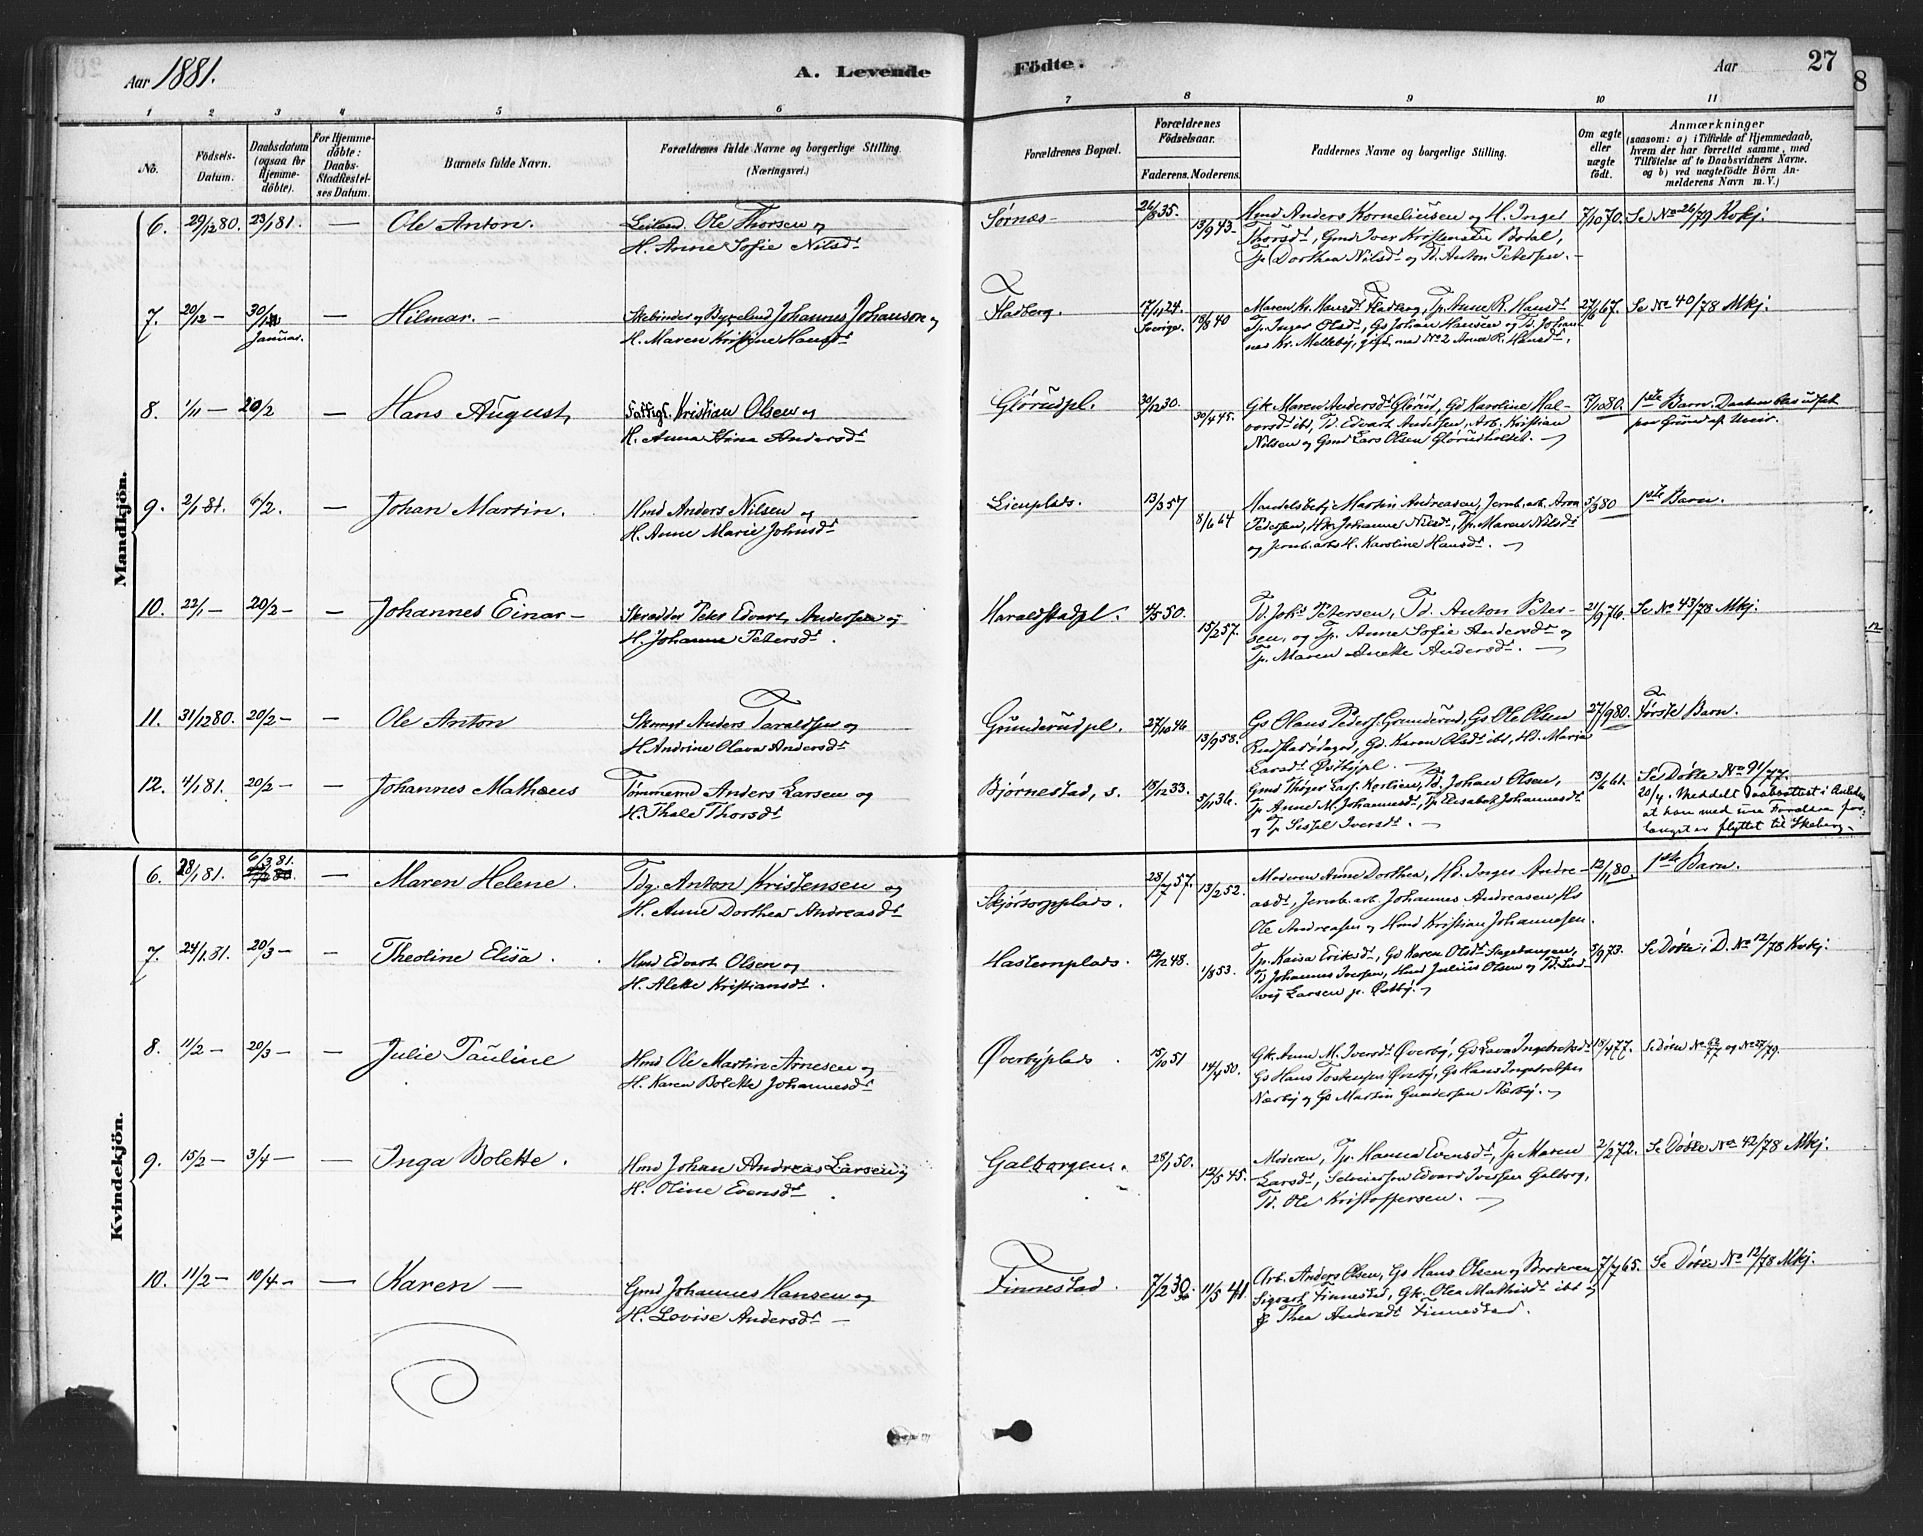 Aar 1881.
A. Levende
Födte.
Aar
27
1 2 3 4 5 6 7 8 9 10 11
No.
Födsels-
Datum.
Daabsdatum
(ogsaa for
Hjemme-
döbte).
For Hjemme-
döbte:
Daabs-
Stadfæstel-
ses Datum.
Barnets fulde Navn.
Forældrenes fulde Navne og borgerlige Stilling.
(Næringsvei.)
Forældrenes Bopæl.
Forældrenes
Födselsaar.
Faderens. Moderens.
Faddernes Navne og borgerlige Stilling.
Om ægte
eller
uægte
födt.
Anmærkninger
(saasom: a) i Tilfælde af Hjemmedaab,
hvem der har forrettet samme, med
Tilföielse af to Daabsvidners Navne.
og b) ved uægtefödte Börn An-
melderens Navn m. V.)
Mandkjön.
6. 29/12 80. 23/1 81. — Ole Anton. Leilend. Ole Thorsen og
H. Anne Sofie Nilsdt
Sørnæs 26/8 35. 13/9 43 —
Hmd Anders Kornelieusen og H. Inger
Thorsdt, Gmd Iver Kristensen Bodal,
Tp. Dorthea Nilsdt og Td. Anton Petersen. —
7/10 70. Se No 26/79 Kvkj.
7. 20/12 — 30/1
Januar. — Hilmar. — Johannes Johanson og
H. Maren Kristine Hansdt
Fladberg. 17/11 24.
Sverige. 18/8 40
Maren Kr. Hansdt Fladberg, Tp. Anne R. Hansdt
Tp. Inger Olsdt, Gs Johan Hansen og Td. Johan-
nes Kr. Melleby, gift med No 2 Anne R. Hansdt.
27/6 67. Se No 40/78 Mkj.
8. 1/11 — 20/2 — Hans August, Fattigl. Kristian Olsen og
H. Anna Stina Andersdt
Glørudpl. 30/12 30. 30/4 45.
Gk. Maren Andersdt Glørud, Gd Karoline Hal-
vorsdt ibd, Td. Edvart Andersen, Arb. Kristian
Nilsen og Gmd Lars Olsen Glørudholdet. —
7/10 80. 1ste Barn. Daaben blev udsat
paa Grund af Veiir.
9. 2/1 81. 6/2. — Johan Martin. Hmd Anders Nilsen og
H. Anne Marie Johnsdt
Lienplads. 13/3 57 8/6 64
Handelsbetj Martin Andreasen, Jernb. arb. Aron
Pedersen, Johanne Nilsdt, Tp. Maren Nilsdt
og Jernb.arbs H. Karoline Hansdt. —
5/3 80 1ste Barn.
10. 22/1 — 20/2 — — Johannes Einar — Skrædder Peter Edvart Andersen og
H. Johanne Petersdt.
Haraldstadpl. 4/5 50. 15/2 57.
Td. Johs Petersen, Td. Anton Peter-
sen, og Tp. Anne Sofie Andersdt og
Tp. Maren Anette Andersdt. —
21/9 76. Se No 43/78 Mkj.
11. 31/12 80. 20/2 — — Ole Anton Anders Taraldsen og
H Andrine Olava Andersdt
Grunderudpl. 27/10 46 13/9 58.
Gs Olaus Peders. Grunderud, Gs Ole Olsen
Rudstadødegd, Gd. Karen Olsdt ibt, Hd. Maria
Larsdt Østbypl. —
27/9 80. Første Barn.
12. 4/1 81. 20/2 — — Johannes Mathæus Tømmermd Anders Larsen og
H. Thale Thorsdt.
Bjørnestad, s. 18/12 33. 5/11 36.
Gmd Thøger Lars. Kortlien, Td. Johan Olsen,
Tp. Anne M. Johannesdt, Tp. Elisabet Johannesdt
og Tp. Sissel Iversdt. —
13/6 61. Se Døbte No 91/77.
20/4. Meddelt Daabsattest i Anledn.
at han med sine Forældre for-
længst er flyttet til Skeberg. —
Kvindekjön.
6. 28/1 81. 6/3 81. — Maren Helene. Tdg. Anton Kristensen og
H. Anne Dorthea Andreasdt
Skjørtorpplads. 28/7 57. 13/2 52.
Moderen Anne Dorthea, Hd. Inger Andre-
asdt, Jernb. arb. Johannes Andreasen, Hs
Ole Andreasen og Hmd Kristian Johannesen.
12/11 80. 1ste Barn.
7. 24/1 81. 20/3 — — Theoline Elisa. Hmd Edvart Olsen og
H. Alette Kristiansdt.
Hastemplads. 12/12 48. 1/8 53.
Tp. Kaisa Eriksdt, Gd Karen Olsdt Sagetangen,
Td Johannes Iversen, Hmd Julius Olsen og Td. Lud-
vig Larsen p. Østby. —
5/9 73. Se Døbte i D. No 12/78 Kvkj.
8. 11/2 — 20/3 — — Julie Pauline Hmd Ole Martin Arnesen og
H. Karen Bolette Johannesdt
Øverbyplads. 15/10 51 14/4 50.
Gk. Anne M. Iversdt Øverby, Gd Lava Ingebretsdt
Gs Hans Tostensen Øverby, Gs Hans Ingebretsen
Nærby og Gs Martin Gundersen Nærby. —
15/4 77. Se Døbte No 62/77 og No 27/79.
9. 15/2 — 3/4 — — Inga Bolette. Hmd Johan Andreas Larsen og
H. Oline Evensdt.
Galborgen. 28/1 50. 12/5 45.
Moderen, Tp. Hanna Evensdt, Tp Maren
Larsdt, Selveiersøn Edvard Iversen Galborg,
Td. Ole Kristoffersen. —
2/2 72. Se Døbte No 42/78 Mkj.
10. 11/2 — 10/4 — — Karen — Gmd Johannes Hansen og
H. Lovise Andersdt —
Finnestad. 7/2 30. 11/5 41
Arb. Anders Olsen, Gs Hans Olsen og Broderen
Sigvart Finnestad, Gk. Olea Mathisdt ibt og
Thea Andersdt Finnestad.
7/7 65. Se Døbte No 12/78 Mkj.